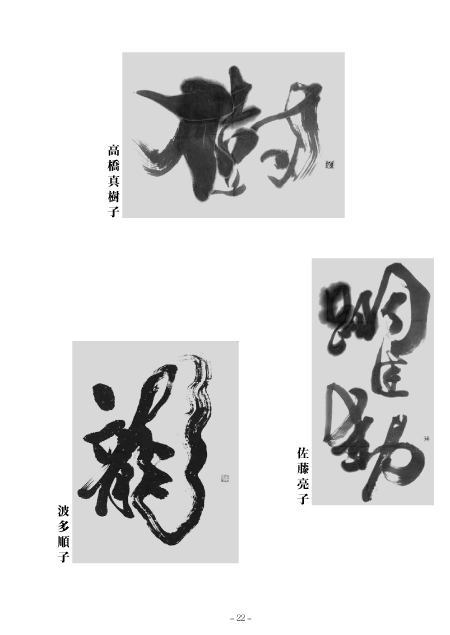 樹
高橋真樹子
躍動
佐藤亮子
龍
波多順子
- 22 -